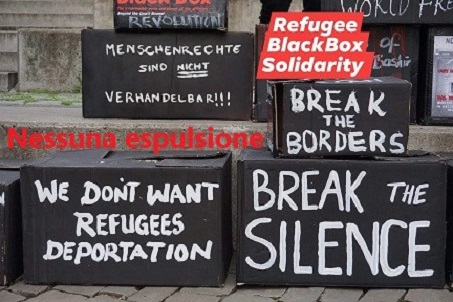 BLACK BOX
REVOLUTION
WORLD FREE
MENSCHENRECHTE
SIND NICHT
VERHANDELBAR!!!
Refugee
BlackBox
Solidarity
of
Bashir
BREAK
THE
BORDERS
Nessuna espulsione
WE DON'T WANT
REFUGEES
DEPORTATION
BREAK THE
SILENCE